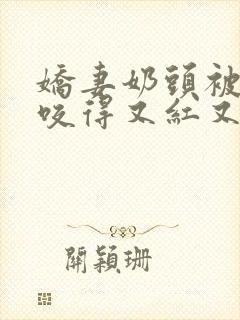 嬌妻奶頭被
咬得又紅又
關穎珊